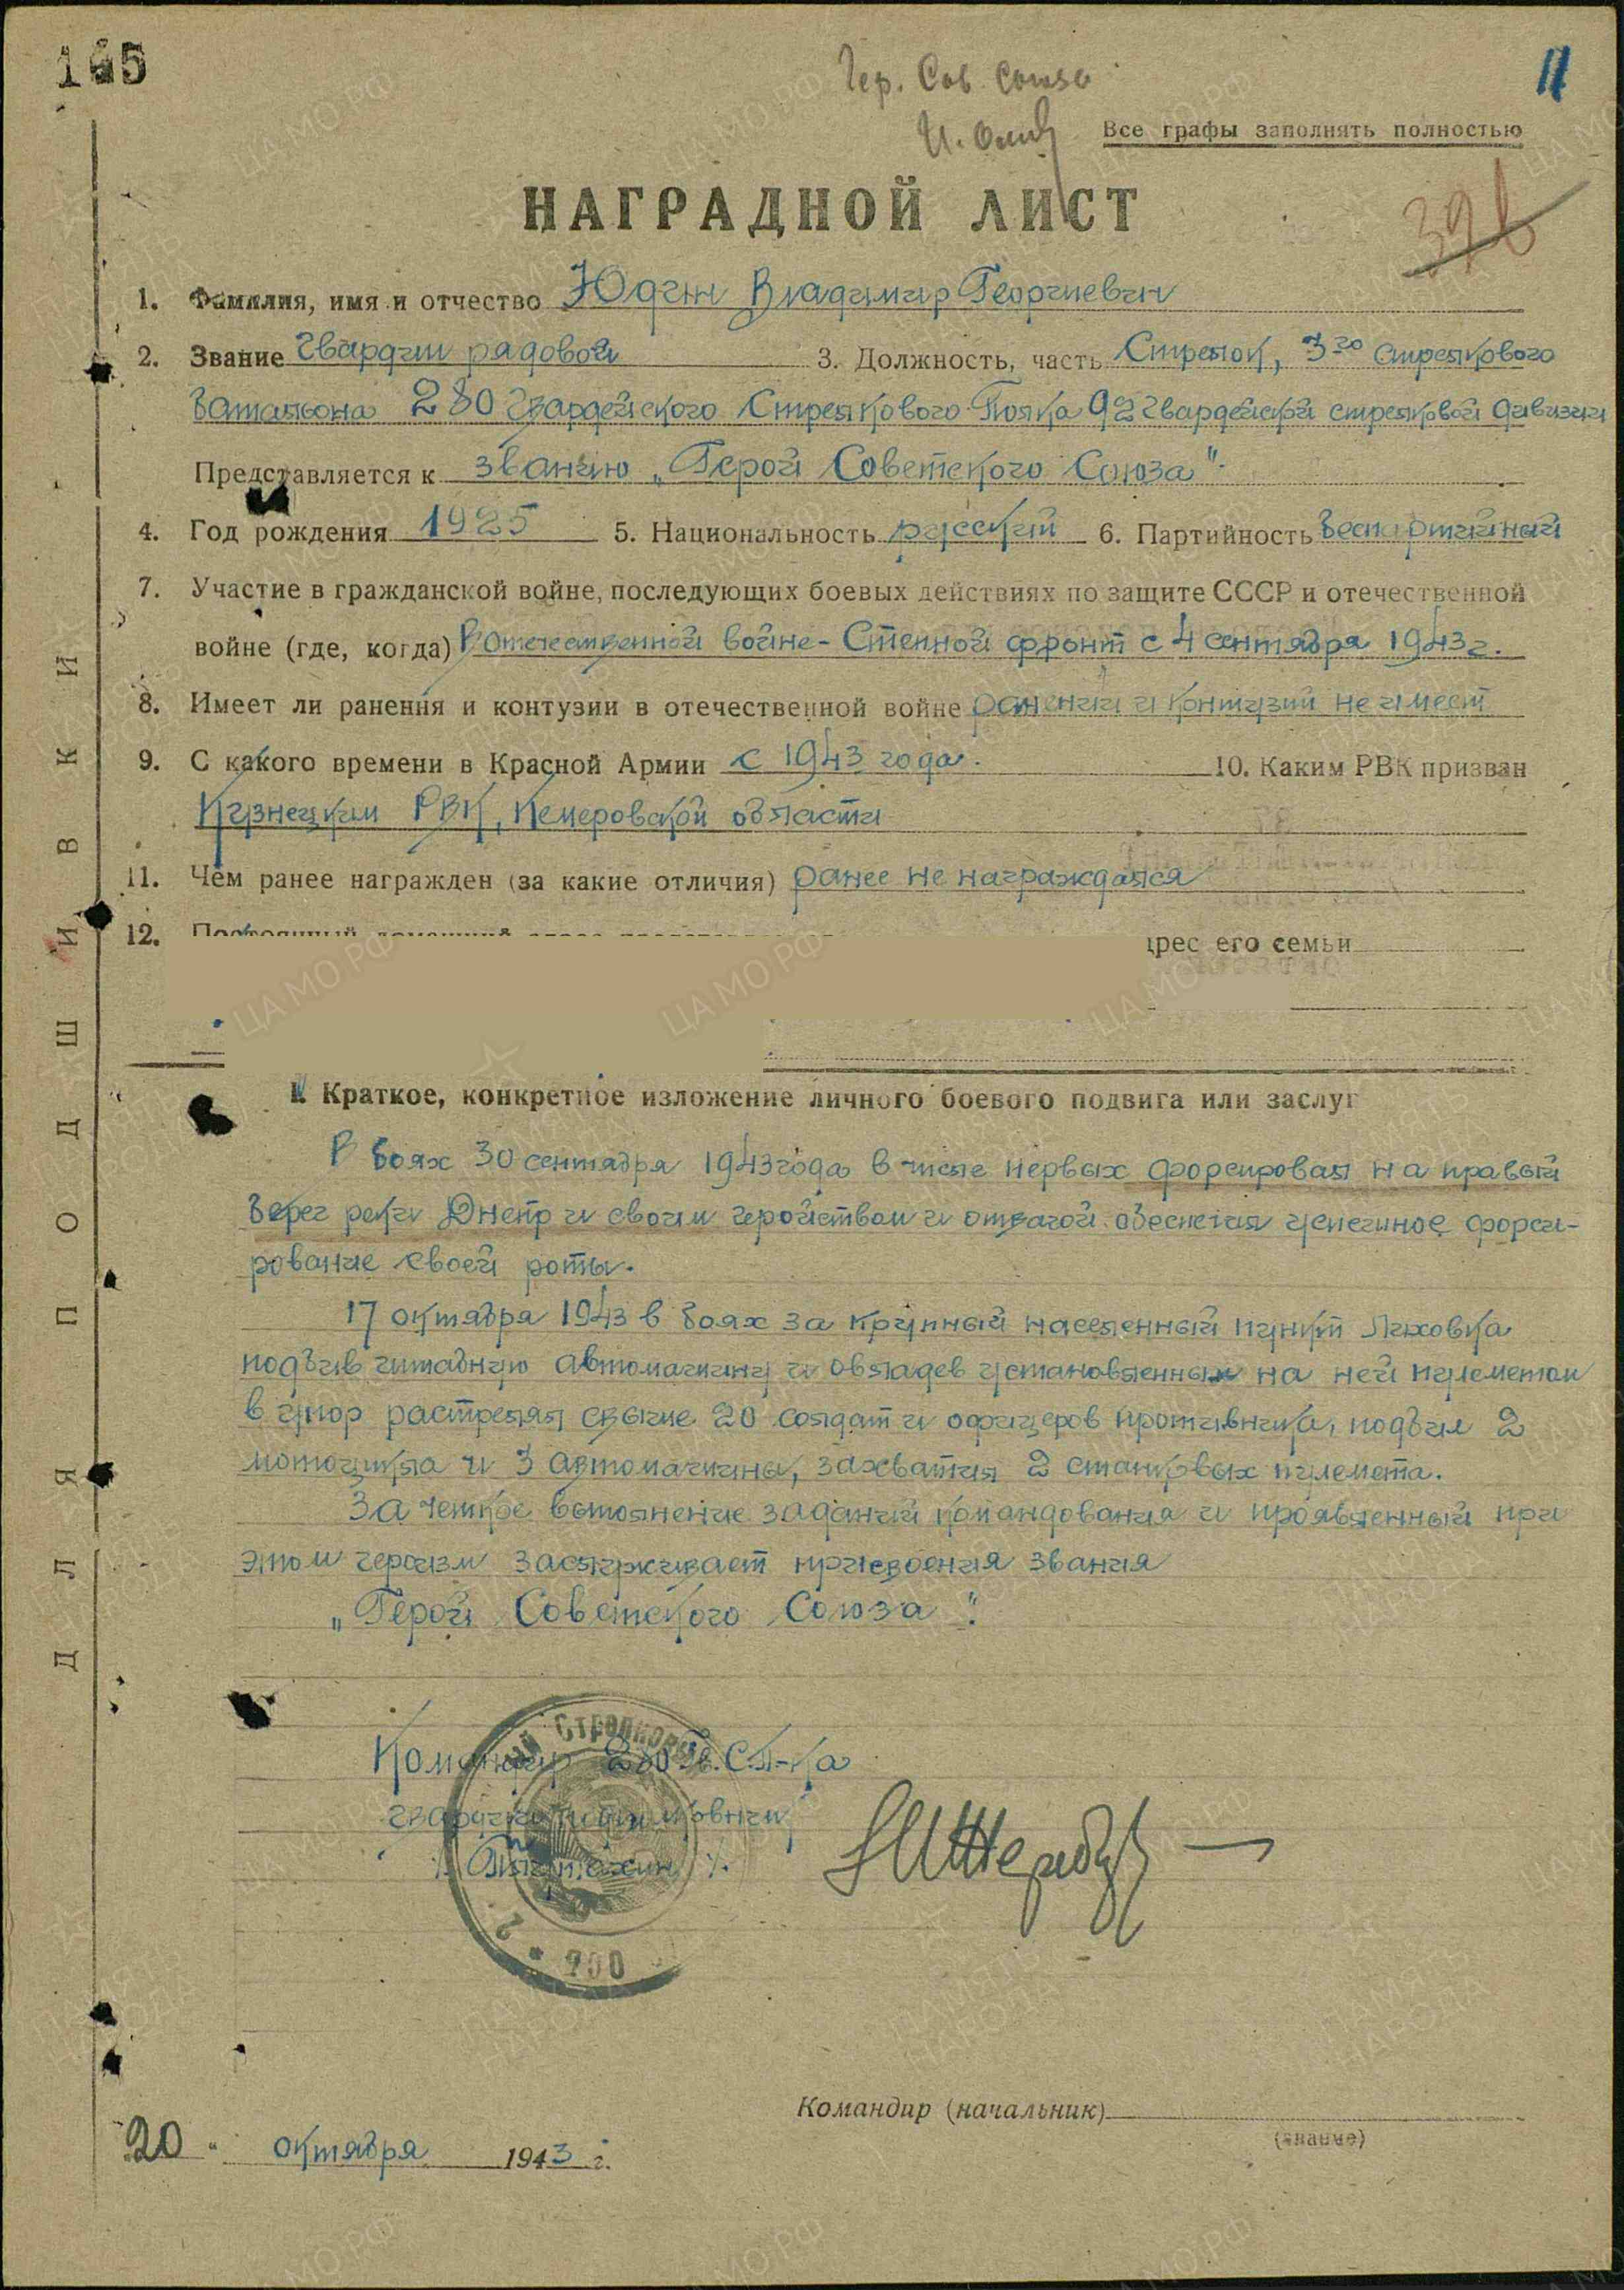 165
Гер. Сов. Союза
11
Все графы заполнять полностью
НАГРАДНОЙ ЛИСТ
1. Фамилия, имя и отчество Юдин Владимир Георгиевич
2. Звание гвардии рядовой 3. Должность, часть Стрелок, 3го стрелкового
батальона 280 гвардейского Стрелкового Полка 92 гвардейской стрелковой дивизии
Представляется к званию „Герой Советского Союза".
4. Год рождения 1925 5. Национальность русский 6. Партийность беспартийный
7. Участие в гражданской войне, последующих боевых действиях по защите СССР и отечественной
войне (где, когда) В Отечественной войне - Степной фронт с 4 сентября 1943 г.
8. Имеет ли ранения и контузии в отечественной войне ранений и контузий не имеет
9. С какого времени в Красной Армии с 1943 года. 10. Каким РВК призван
Кузнецким РВК, Кемеровской области
11. Чем ранее награжден (за какие отличия) ранее не награждался
12. Постоянный домашний адрес его семьи
ДЛЯ ПОДШИВКИ
Краткое, конкретное изложение личного боевого подвига или заслуг
В боях 30 сентября 1943 года в числе первых форсировал на правый
берег реки Днепр и своим геройством и отвагой обеспечил успешное форси-
рование своей роты.
17 октября 1943 в боях за крупный населенный пункт Лиховка
подбив штабную автомашину и овладев установленным на ней пулеметом
в упор растрелял свыше 20 солдат и офицеров противника, подбил 2
мотоцикла и 3 автомашины, захватил 2 станковых пулемета.
За четкое выполнение заданий командования и проявленный при
этом героизм заслуживает присвоения звания
„Герой Советского Союза".
Командир 280 Гв. С.П-ка
гвардии подполковник
Стрелковый
Командир (начальник)
(звание)
20 " октября 1943 г.